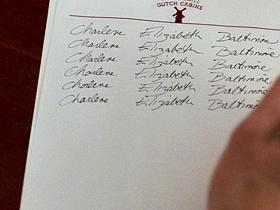 DUTCH CABINS
Charlene Elizabeth Baltimore
Charlene Elizabeth Baltimore
Charlene Elizabeth Baltimore
Charlene Elizabeth Baltimore
Charlene Elizabeth Baltimore
Charlene Elizabeth Baltimore